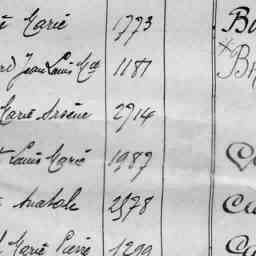 Marie 1773 Bu
Jean Louis Mie 1181 Br
Marie Arsène 2714
Louis Marie 1987
Anatole 2578 Ca
Marie Pierre 1299 Ca